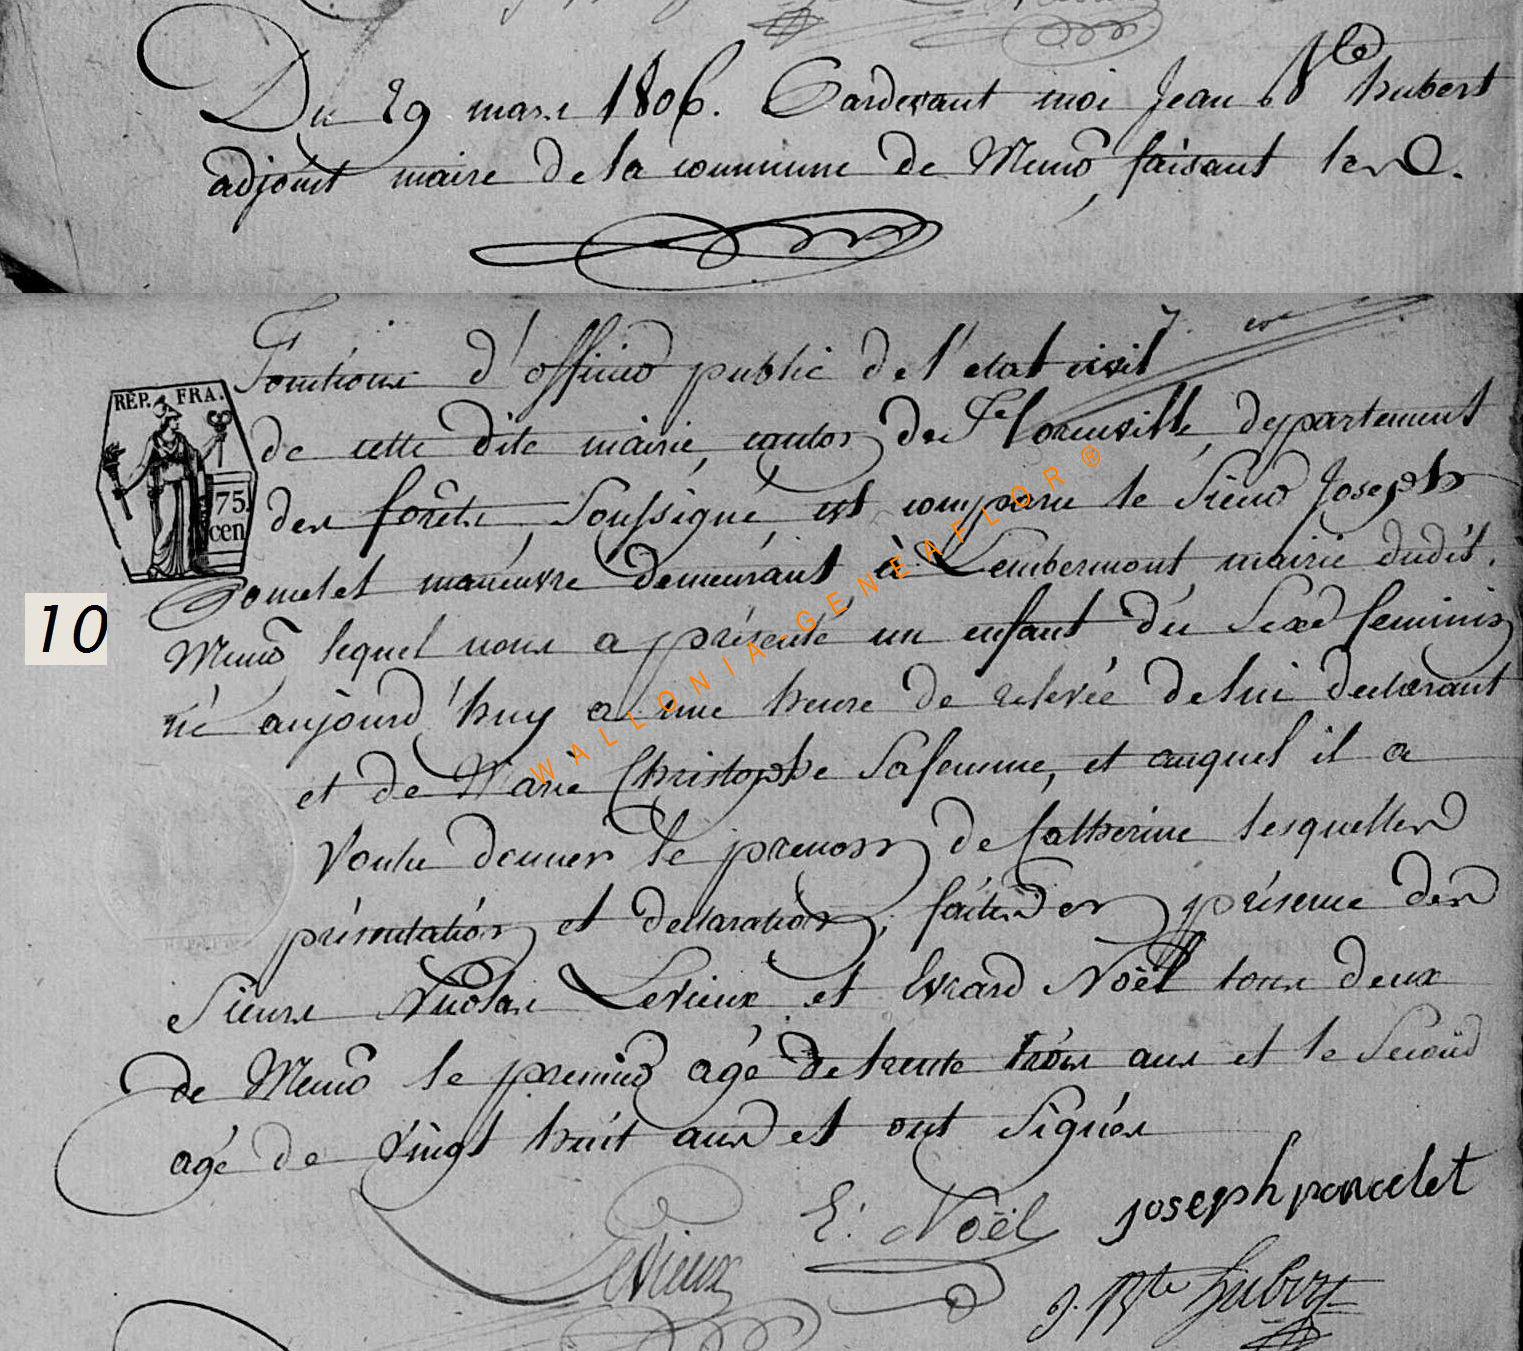 Du 29 mars 1806. Pardevant moi Jean Bte hubert
adjoint maire de la commune de Muno, faisant les
fonctions d'officier public de l'etat civil
de cette dite mairie, canton de Florenville, departement
des forêts, soussigné, est comparu le Sieur Joseph
Poncelet manœuvre demeurant à Lembermont mairie dudit
Muno lequel nous a présenté un enfant du Sexe feminin
né aujourd'huy a une heure de relevée de lui declarant
et de Marie Christophe Sa femme, et auquel il a
Voulu donner le prenom de Catherine lesquelles
présentation et declaration, faites en présence des
Sieurs Nicolas Levieux et Evrard Noël tous deux
de Muno le premier agé de trente trois ans et le Second
agé de Vingt huit ans et ont Signés
E. Noël joseph poncelet
Levieux
J. Bte hubert
REP. FRA.
75
cen
10
WALLONIA-GENEAFLOR®